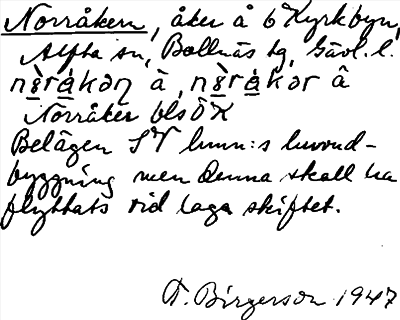 Norråkern, åker å 6 Kyrkbyn,
Alfta sn, Bollnäs tg, Gävl. l.
Norråker
Belägen SV hunn:s huvud-
byggning men denna skall ha
flyttats vid laga skiftet.
T. Birgerson 1947